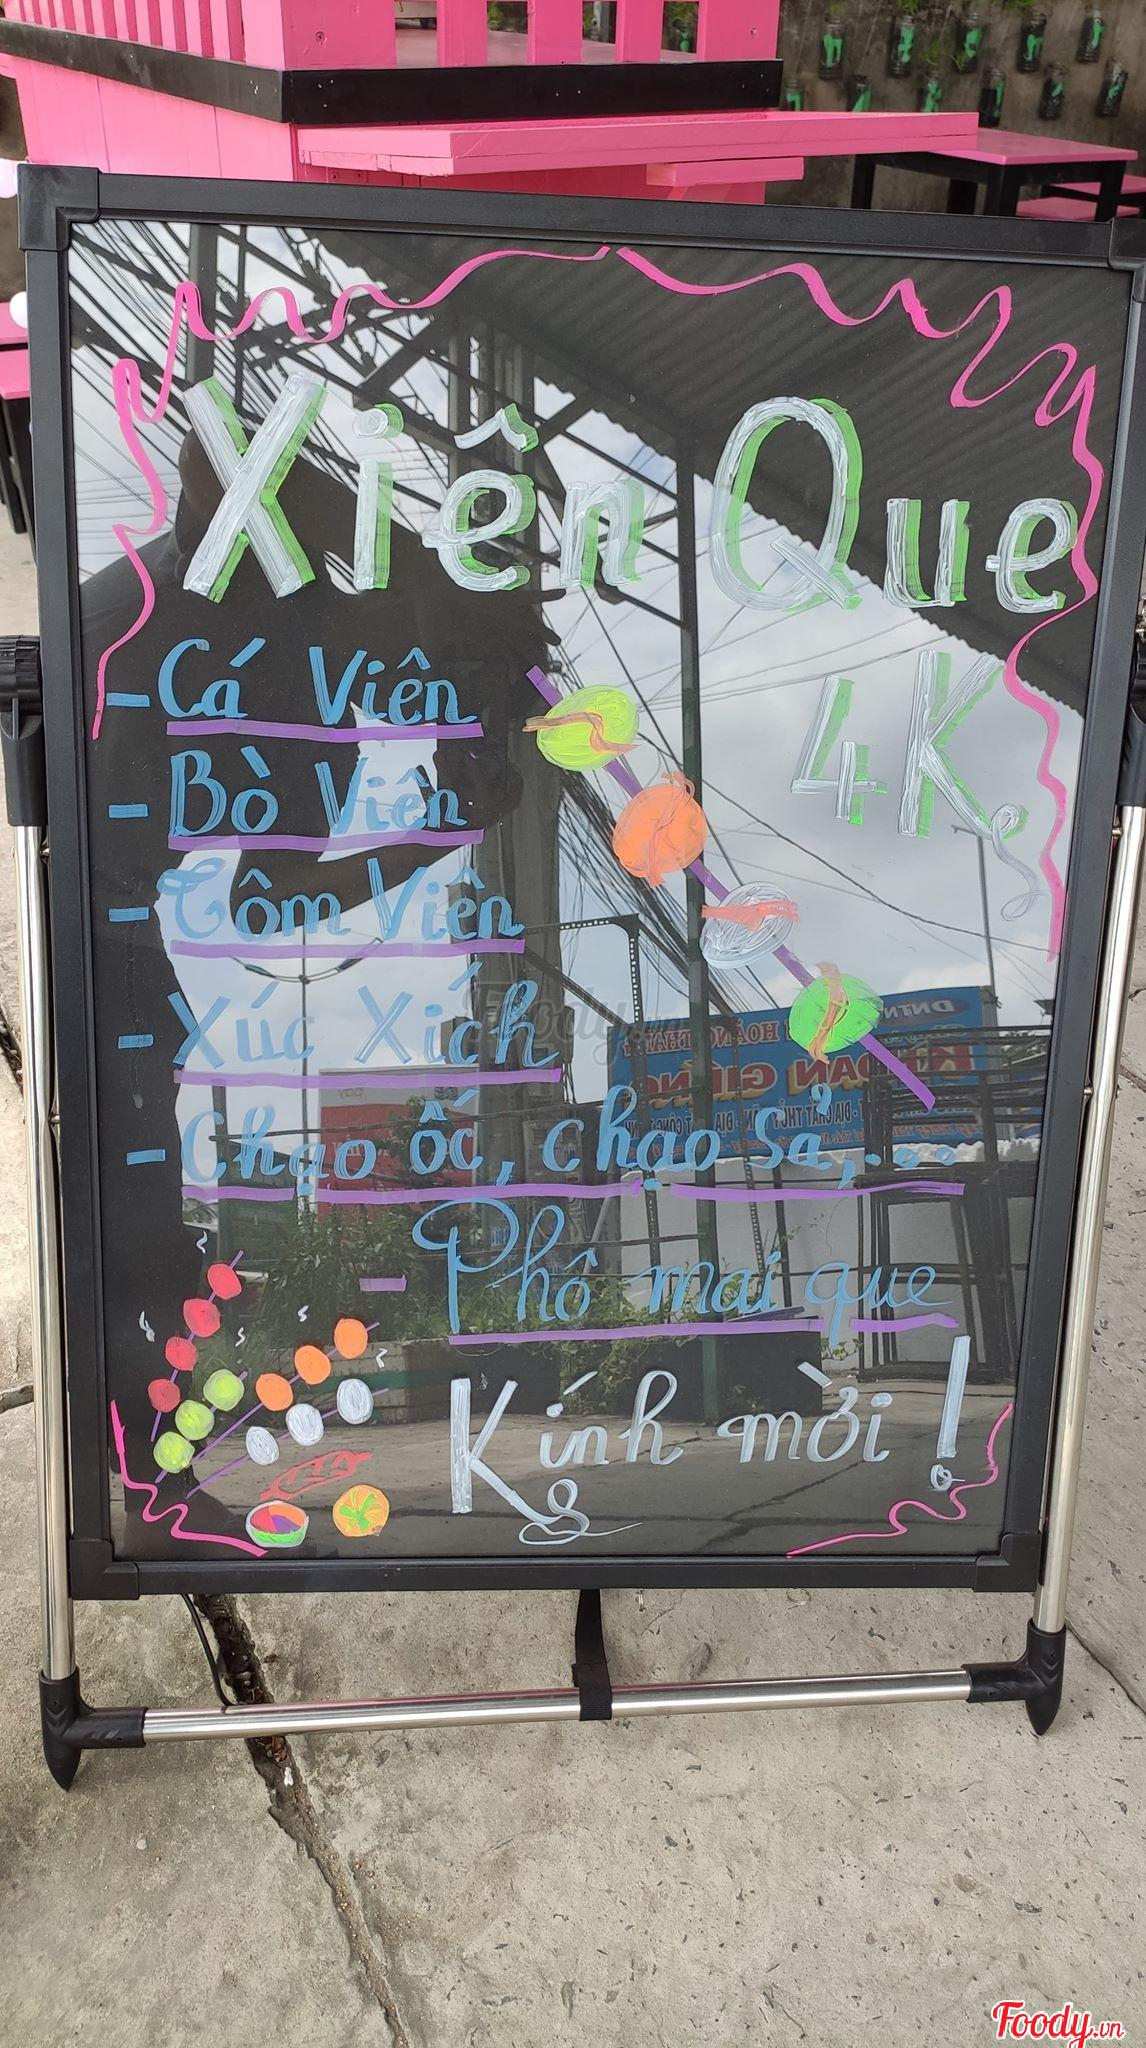 Xiên Que
4K
- Cá Viên
- Bò Viên
- Tôm Viên
- Xúc Xích
- Chạo ốc, chạo sả,...
- Phô mai que
Kính mời!
Foody.vn